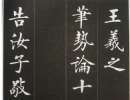 王羲之
筆勢論十
告汝子敬